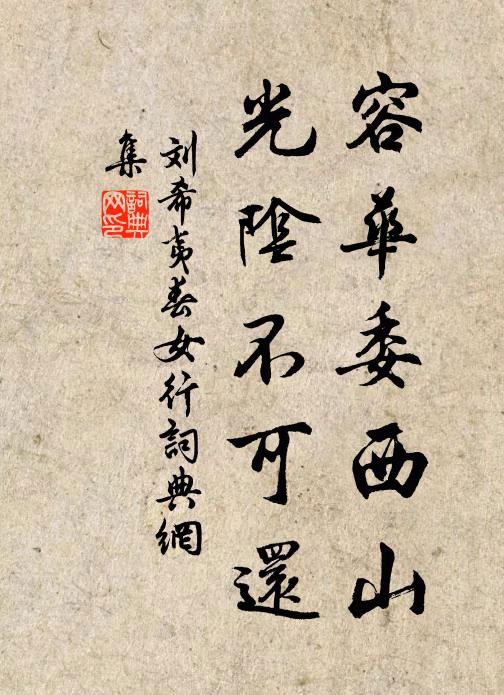 容華委西山
光陰不可還
刘希夷春女行詞典網
集
詞典
网印